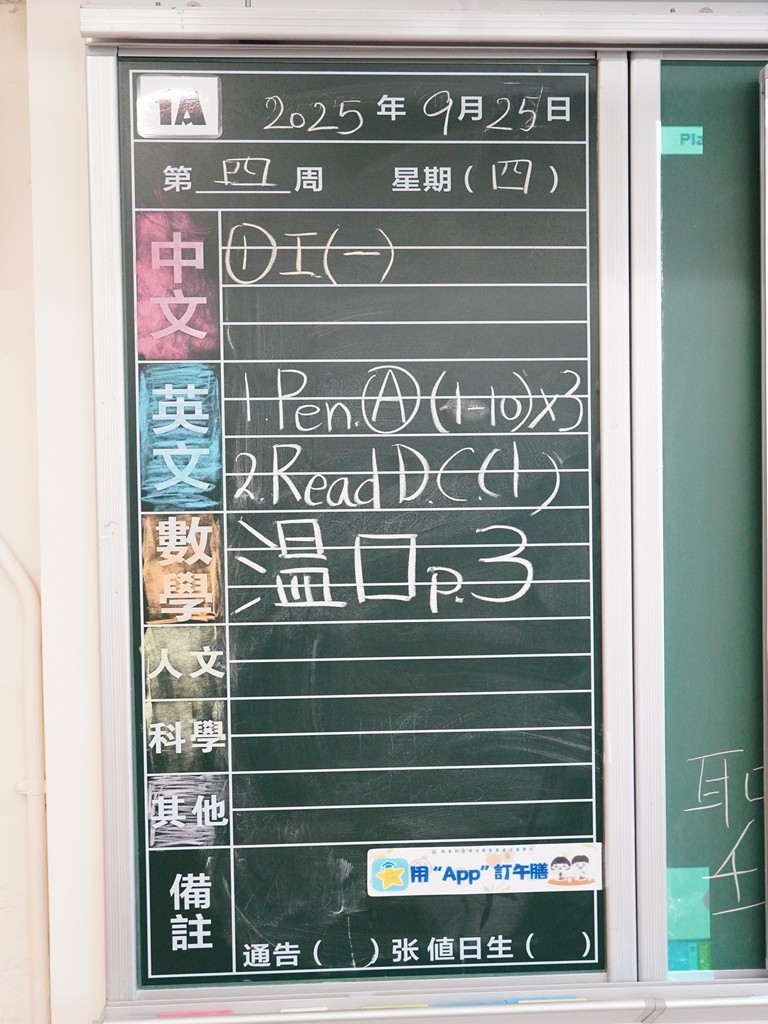 1A 2025年9月25日
第四周 星期(四)
中文
① 工(一)
英文
1. Pen. Ⓐ (1-10)x3
2. Read D.C.(1)
數學
溫口p.3
人文
科學
其他
備註
用“App”訂午膳
通告( )张 值日生( )
Pla